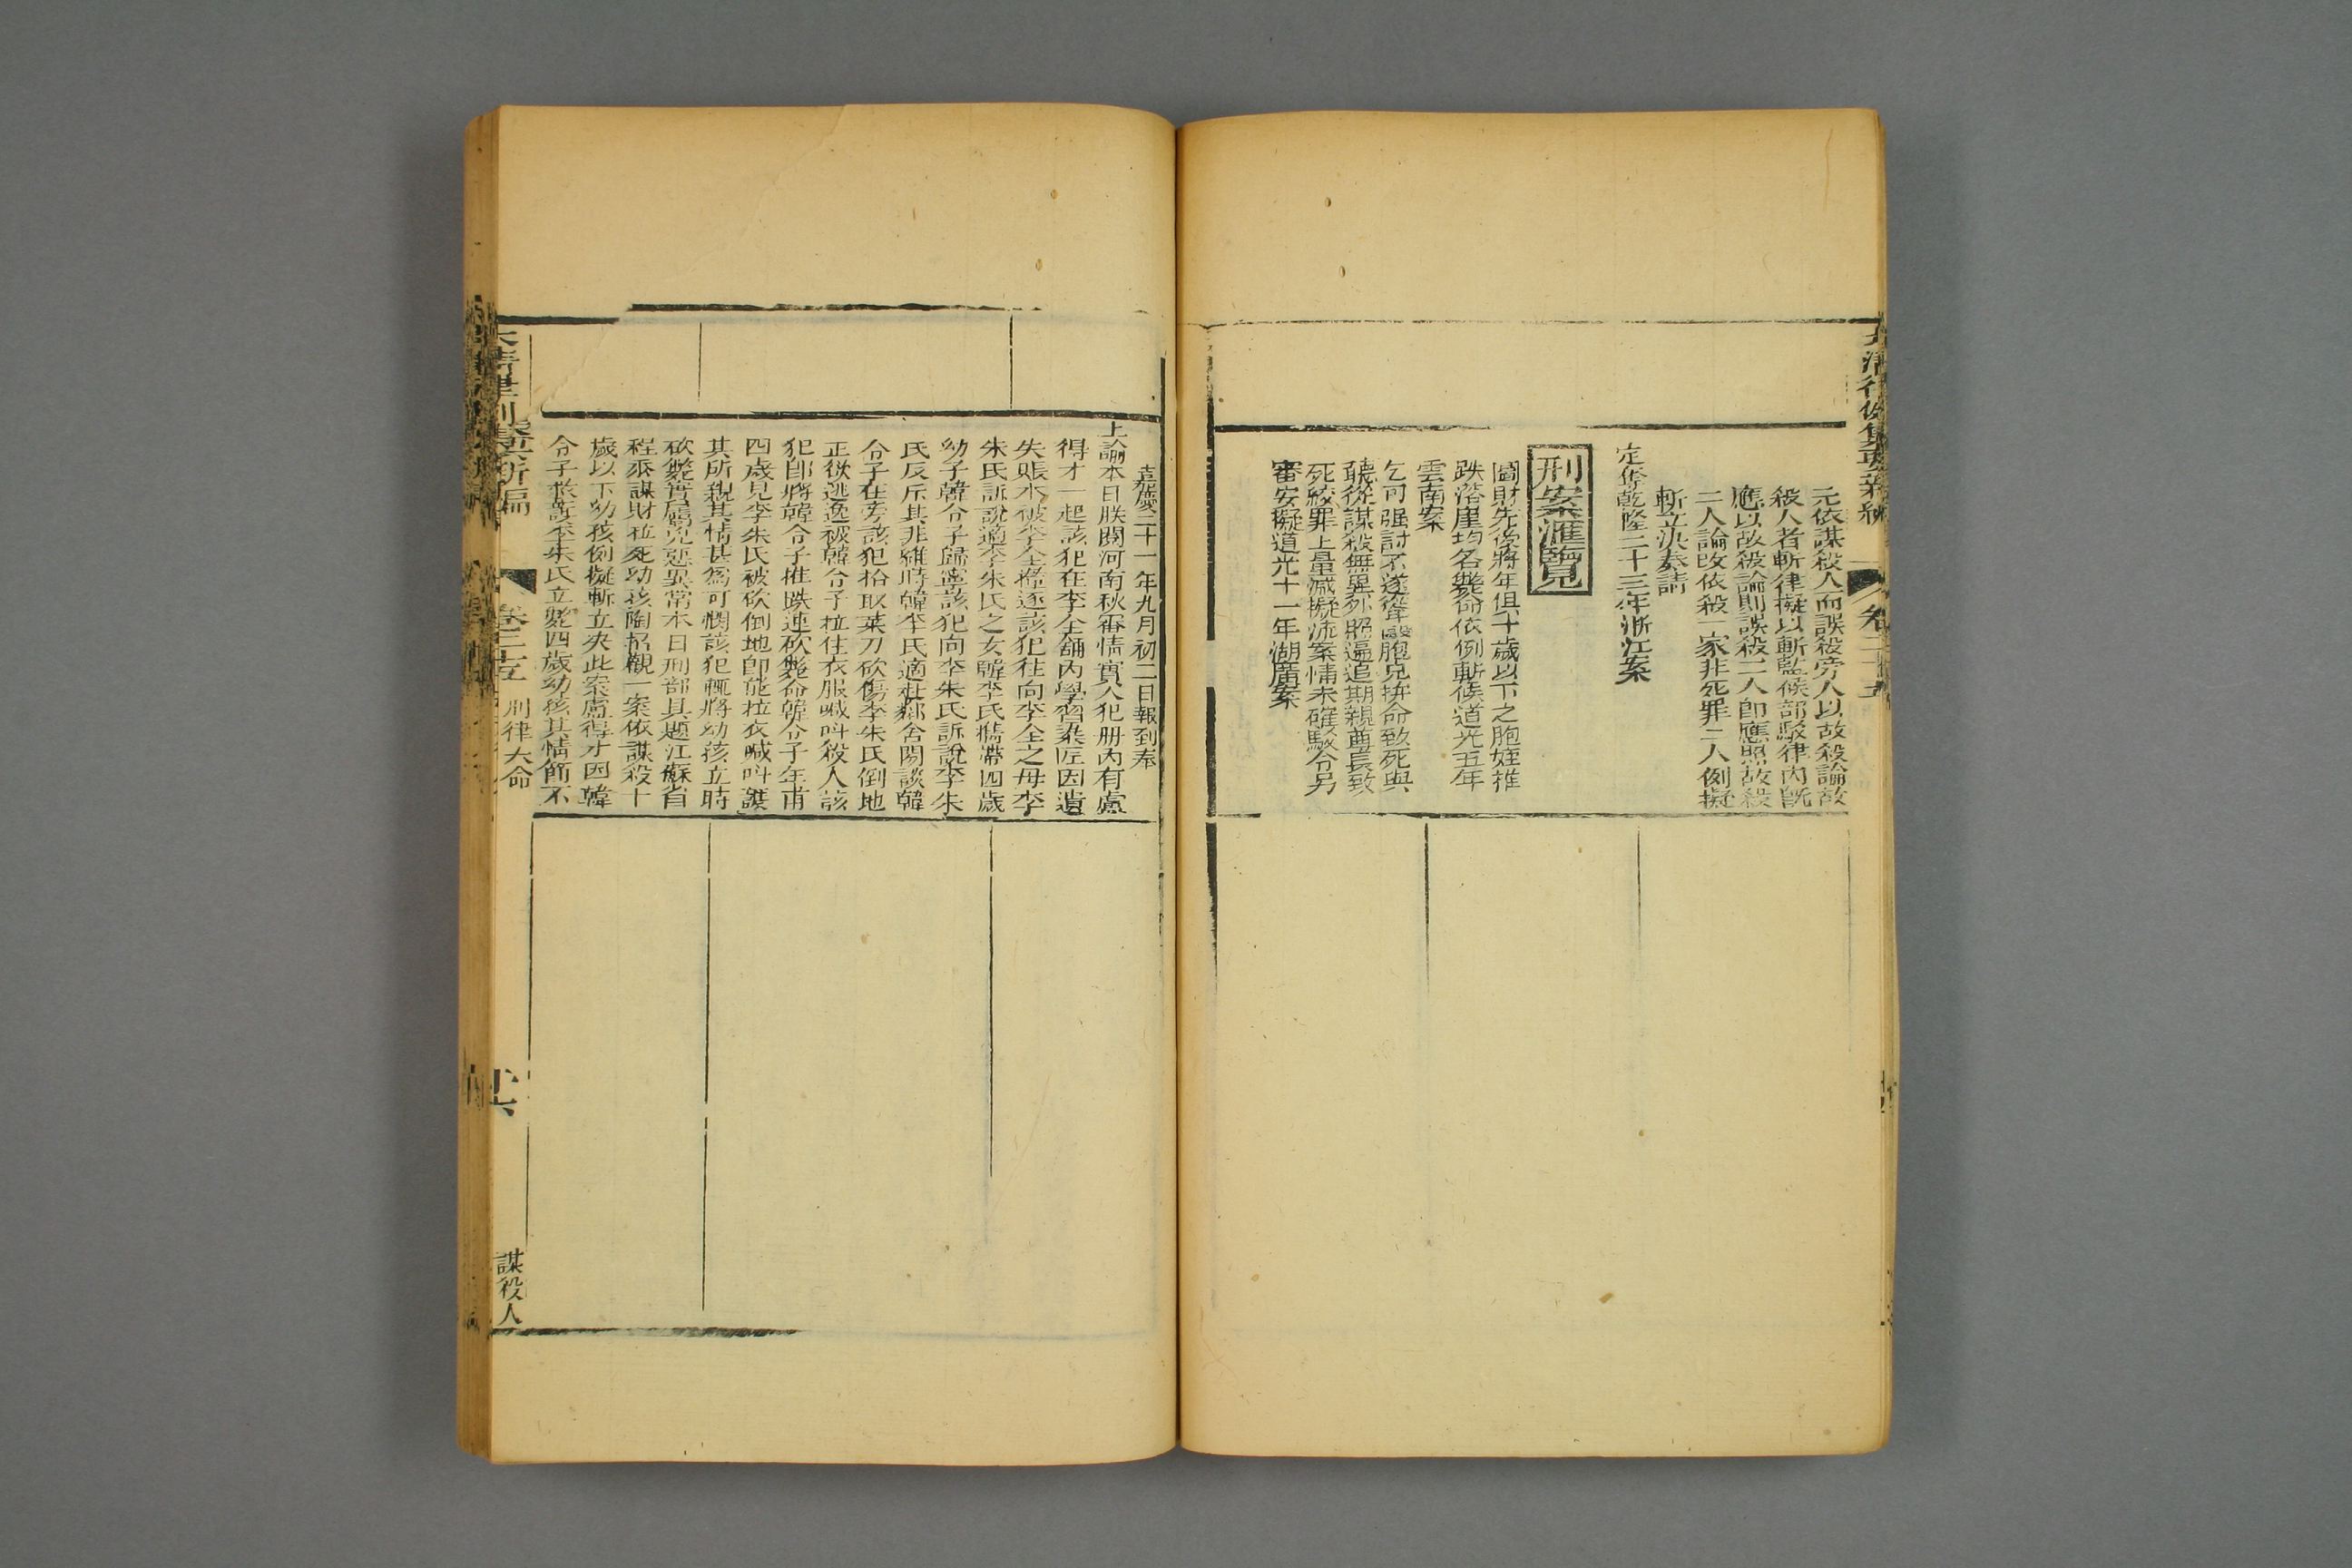 元依謀殺人而誤殺旁人以故殺論故
殺人者斬律擬以斬監候部駁律內旣
應以故殺論則誤殺二人卽應照故殺
二人論改依殺一家非死罪二人例擬
斬立決奏請
定奪乾隆二十三年浙江案
刑案滙覽
圖財先後將年俱十歲以下之胞姪推
跌落崖均各斃命依例斬候道光五年
雲南案
乞丐强討不遂從毆胞兄拚命致死與
聽從謀殺無異外照逼迫期親尊長致
死絞罪上量減擬流案情未確駁令另
審妥擬道光十一年湖廣案
大清律例集要新編
卷二十五
嘉慶二十一年九月初二日報到奉
上諭本日朕閱河南秋審情實人犯册內有盧
得才一起該犯在李全舖內學習染匠因遺
失賬本被李全攆逐該犯往向李全之母李
朱氏訴說適李朱氏之女韓李氏攜帶四歲
幼子韓合子歸寧該犯向李朱氏訴說李朱
氏反斥其非維時韓李氏適赴鄰舍閒談韓
合子在旁該犯拾取菜刀砍傷李朱氏倒地
正欲逃逸被韓合子拉住衣服喊叫殺人該
犯卽將韓合子推跌連砍斃命韓合子年甫
四歲見李朱氏被砍倒地卽能拉衣喊叫護
其所親其情甚爲可憫該犯輒將幼孩立時
砍斃實屬兇惡異常本日刑部具題江蘇省
程添謀財拉死幼孩陶招觀一案依謀殺十
歲以下幼孩例擬斬立決此案盧得才因韓
合子救護李朱氏立斃四歲幼孩其情節不
大清律例集要新編
卷二十五
刑律人命
廿六
謀殺人